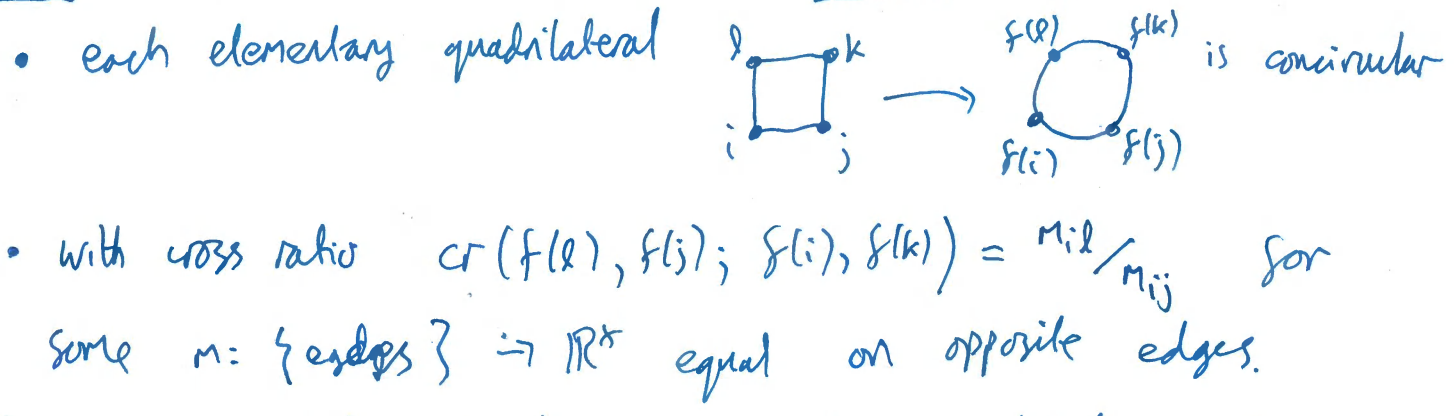 • each elementary quadrilateral l k i j → f(l) f(k) f(i) f(j) is concircular
• with cross ratio cr(f(l), f(j); f(i), f(k)) = m_il/m_ij for
some m: {edges} → ℝ^x equal on opposite edges.